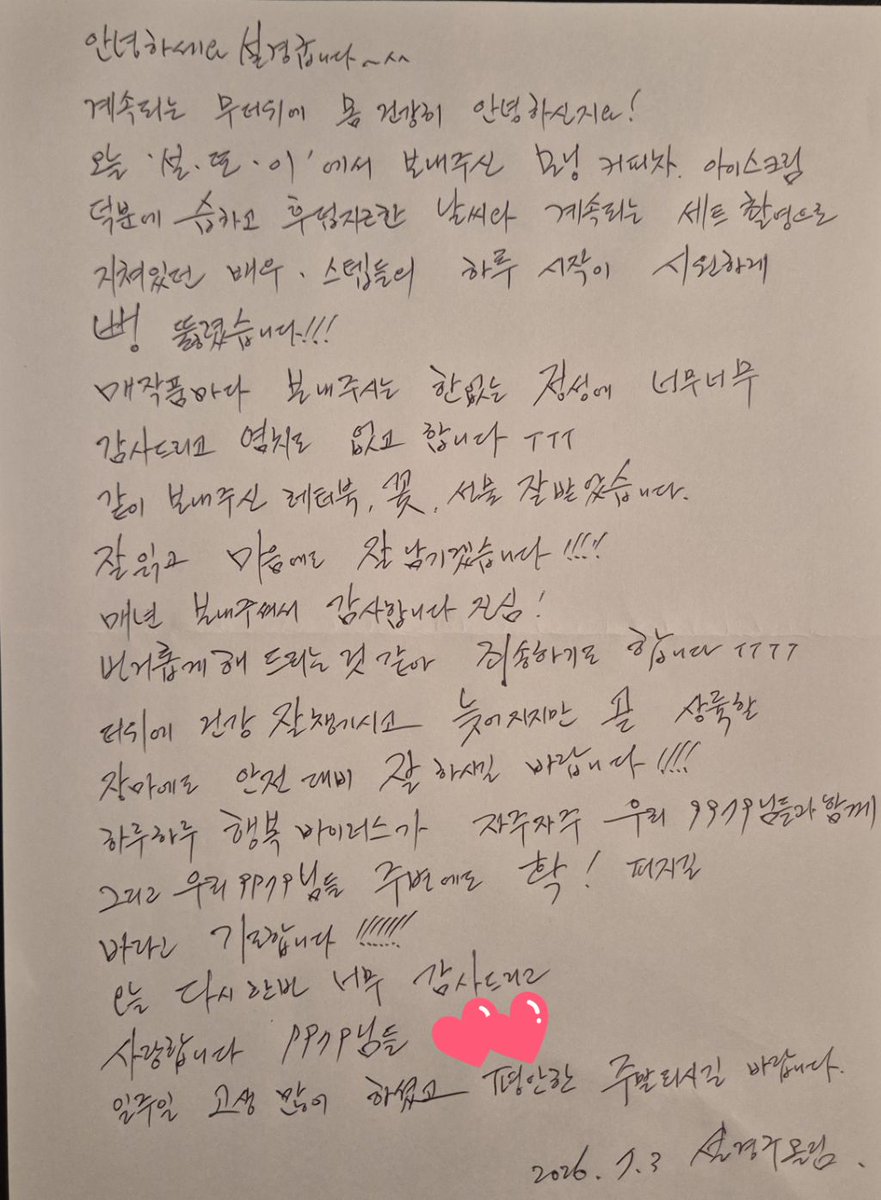 안녕하세요 설경굽니다~^^
계속되는 무더위에 몸 건강히 안녕하신지요!
오늘 '설.또.이'에서 보내주신 모닝 커피차. 아이스크림
덕분에 습하고 후덥지근한 날씨와 계속되는 세트 촬영으로
지쳐있던 배우·스텝들의 하루 시작이 시원하게
뻥 뚫렸습니다!!!
매작품마다 보내주시는 한없는 정성에 너무너무
감사드리고 염치도 없고 합니다 ㅜㅜㅜ
같이 보내주신 레터북, 꽃, 선물 잘 받았습니다.
잘 읽고 마음에도 잘 남기겠습니다!!!!
매년 보내주셔서 감사합니다 진심!
번거롭게 해 드리는 것 같아 죄송하기도 합니다 ㅜㅜㅜㅜ
더위에 건강 잘 챙기시고 늦어지지만 곧 상륙할
장마에도 안전 대비 잘 하시길 바랍니다!!!!
하루하루 행복 바이러스가 자주자주 우리 9979님들과 함께
그리고 우리 9979님들 주변에도 확! 퍼지길
바라고 기도합니다!!!!!!!
오늘 다시 한번 너무 감사드리고
사랑합니다 9979님들
일주일 고생 많이 하셨고 평안한 주말되시길 바랍니다.
2026. 7. 3 설경구올림.